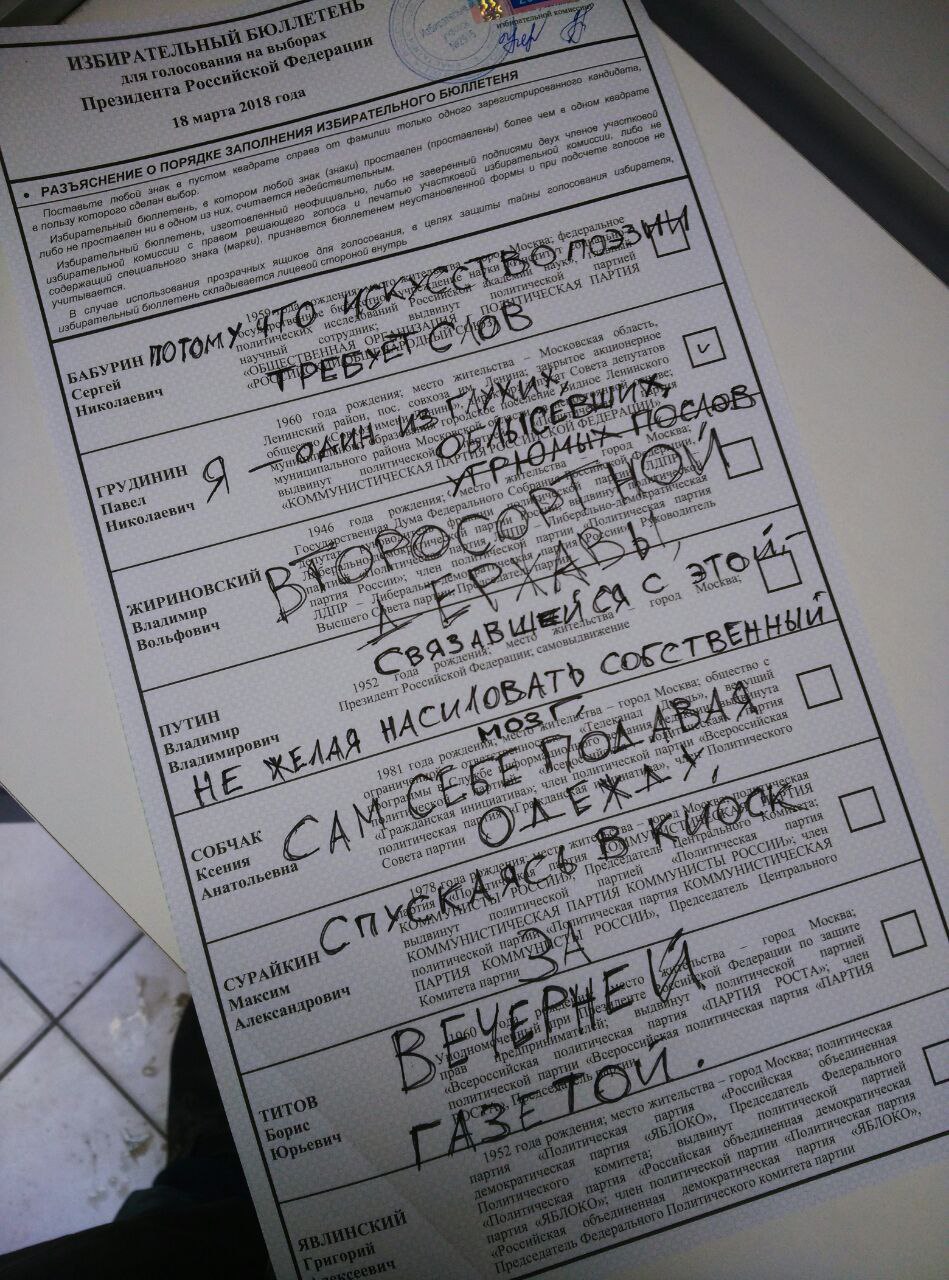 ИЗБИРАТЕЛЬНЫЙ БЮЛЛЕТЕНЬ
для голосования на выборах
Президента Российской Федерации
18 марта 2018 года
избирательной комиссии
• РАЗЪЯСНЕНИЕ О ПОРЯДКЕ ЗАПОЛНЕНИЯ ИЗБИРАТЕЛЬНОГО БЮЛЛЕТЕНЯ
Поставьте любой знак в пустом квадрате справа от фамилии только одного зарегистрированного кандидата,
в пользу которого сделан выбор.
Избирательный бюллетень, в котором любой знак (знаки) проставлен (проставлены) более чем в одном квадрате
либо не проставлен ни в одном из них, считается недействительным.
Избирательный бюллетень, изготовленный неофициально, либо не заверенный подписями двух членов участковой
избирательной комиссии с правом решающего голоса и печатью участковой избирательной комиссии, либо не
содержащий специального знака (марки), признается бюллетенем неустановленной формы и при подсчете голосов не
учитывается.
В случае использования прозрачных ящиков для голосования, в целях защиты тайны голосования избирателя,
избирательный бюллетень складывается лицевой стороной внутрь
БАБУРИН
Сергей
Николаевич
1959 года рождения; место жительства – город Москва; федеральное
государственное бюджетное учреждение науки «Институт социально-
политических исследований Российской академии наук», главный
научный сотрудник; выдвинут политической партией
«ОБЩЕСТВЕННАЯ ОРГАНИЗАЦИЯ – ПОЛИТИЧЕСКАЯ ПАРТИЯ
«РОССИЙСКИЙ ОБЩЕНАРОДНЫЙ СОЮЗ»
ПОТОМУ ЧТО ИСКУССТВО ПОЭЗИИ
ТРЕБУЕТ СЛОВ
ГРУДИНИН
Павел
Николаевич
1960 года рождения; место жительства – Московская область,
Ленинский район, пос. совхоза им. Ленина; закрытое акционерное
выдвинут политической партией
«КОММУНИСТИЧЕСКАЯ ПАРТИЯ РОССИЙСКОЙ ФЕДЕРАЦИИ»
Я – ОДИН ИЗ ГЛУХИХ,
ОБЛЫСЕВШИХ,
УГРЮМЫХ ПОСЛОВ
ЖИРИНОВСКИЙ
Владимир
Вольфович
1946 года рождения; место жительства – город Москва;
Государственная Дума Федерального Собрания Российской Федерации,
ЛДПР – Либерально-демократическая партия России, Руководитель
Высшего Совета партии, Председатель партии
ВТОРОСОРТНОЙ
ДЕРЖАВЫ,
СВЯЗАВШЕЙСЯ С ЭТОЙ,–
ПУТИН
Владимир
Владимирович
1952 года рождения; место жительства – город Москва;
Президент Российской Федерации; самовыдвижение
НЕ ЖЕЛАЯ НАСИЛОВАТЬ СОБСТВЕННЫЙ
МОЗГ,
СОБЧАК
Ксения
Анатольевна
1981 года рождения; место жительства – город Москва; общество с
ограниченной ответственностью «Телеканал Дождь», ведущий
Совета партии
САМ СЕБЕ ПОДАВАЯ
ОДЕЖДУ,
СУРАЙКИН
Максим
Александрович
1978 года рождения; место жительства – город Москва; политическая
партия «Политическая партия КОММУНИСТИЧЕСКАЯ ПАРТИЯ
КОММУНИСТЫ РОССИИ», Председатель Центрального Комитета;
выдвинут политической партией «Политическая партия
КОММУНИСТИЧЕСКАЯ ПАРТИЯ КОММУНИСТЫ РОССИИ»; член
политической партии «Политическая партия КОММУНИСТИЧЕСКАЯ
ПАРТИЯ КОММУНИСТЫ РОССИИ», Председатель Центрального
Комитета партии
СПУСКАЯСЬ В КИОСК
ЗА
ТИТОВ
Борис
Юрьевич
1960 года рождения; место жительства – город Москва;
Уполномоченный при Президенте Российской Федерации по защите
прав предпринимателей; выдвинут политической партией
«Всероссийская политическая партия «ПАРТИЯ РОСТА»; член
политической партии «Всероссийская политическая партия «ПАРТИЯ
РОСТА», Председатель партии
ВЕЧЕРНЕЙ
ГАЗЕТОЙ.
ЯВЛИНСКИЙ
Григорий
Алексеевич
1952 года рождения; место жительства – город Москва; политическая
партия «Политическая партия «Российская объединенная
демократическая партия «ЯБЛОКО», Председатель Федерального
Политического комитета; выдвинут политической партией
«Политическая партия «Российская объединенная демократическая
партия «ЯБЛОКО»; член политической партии «Политическая партия
«Российская объединенная демократическая партия «ЯБЛОКО»,
Председатель Федерального Политического комитета партии